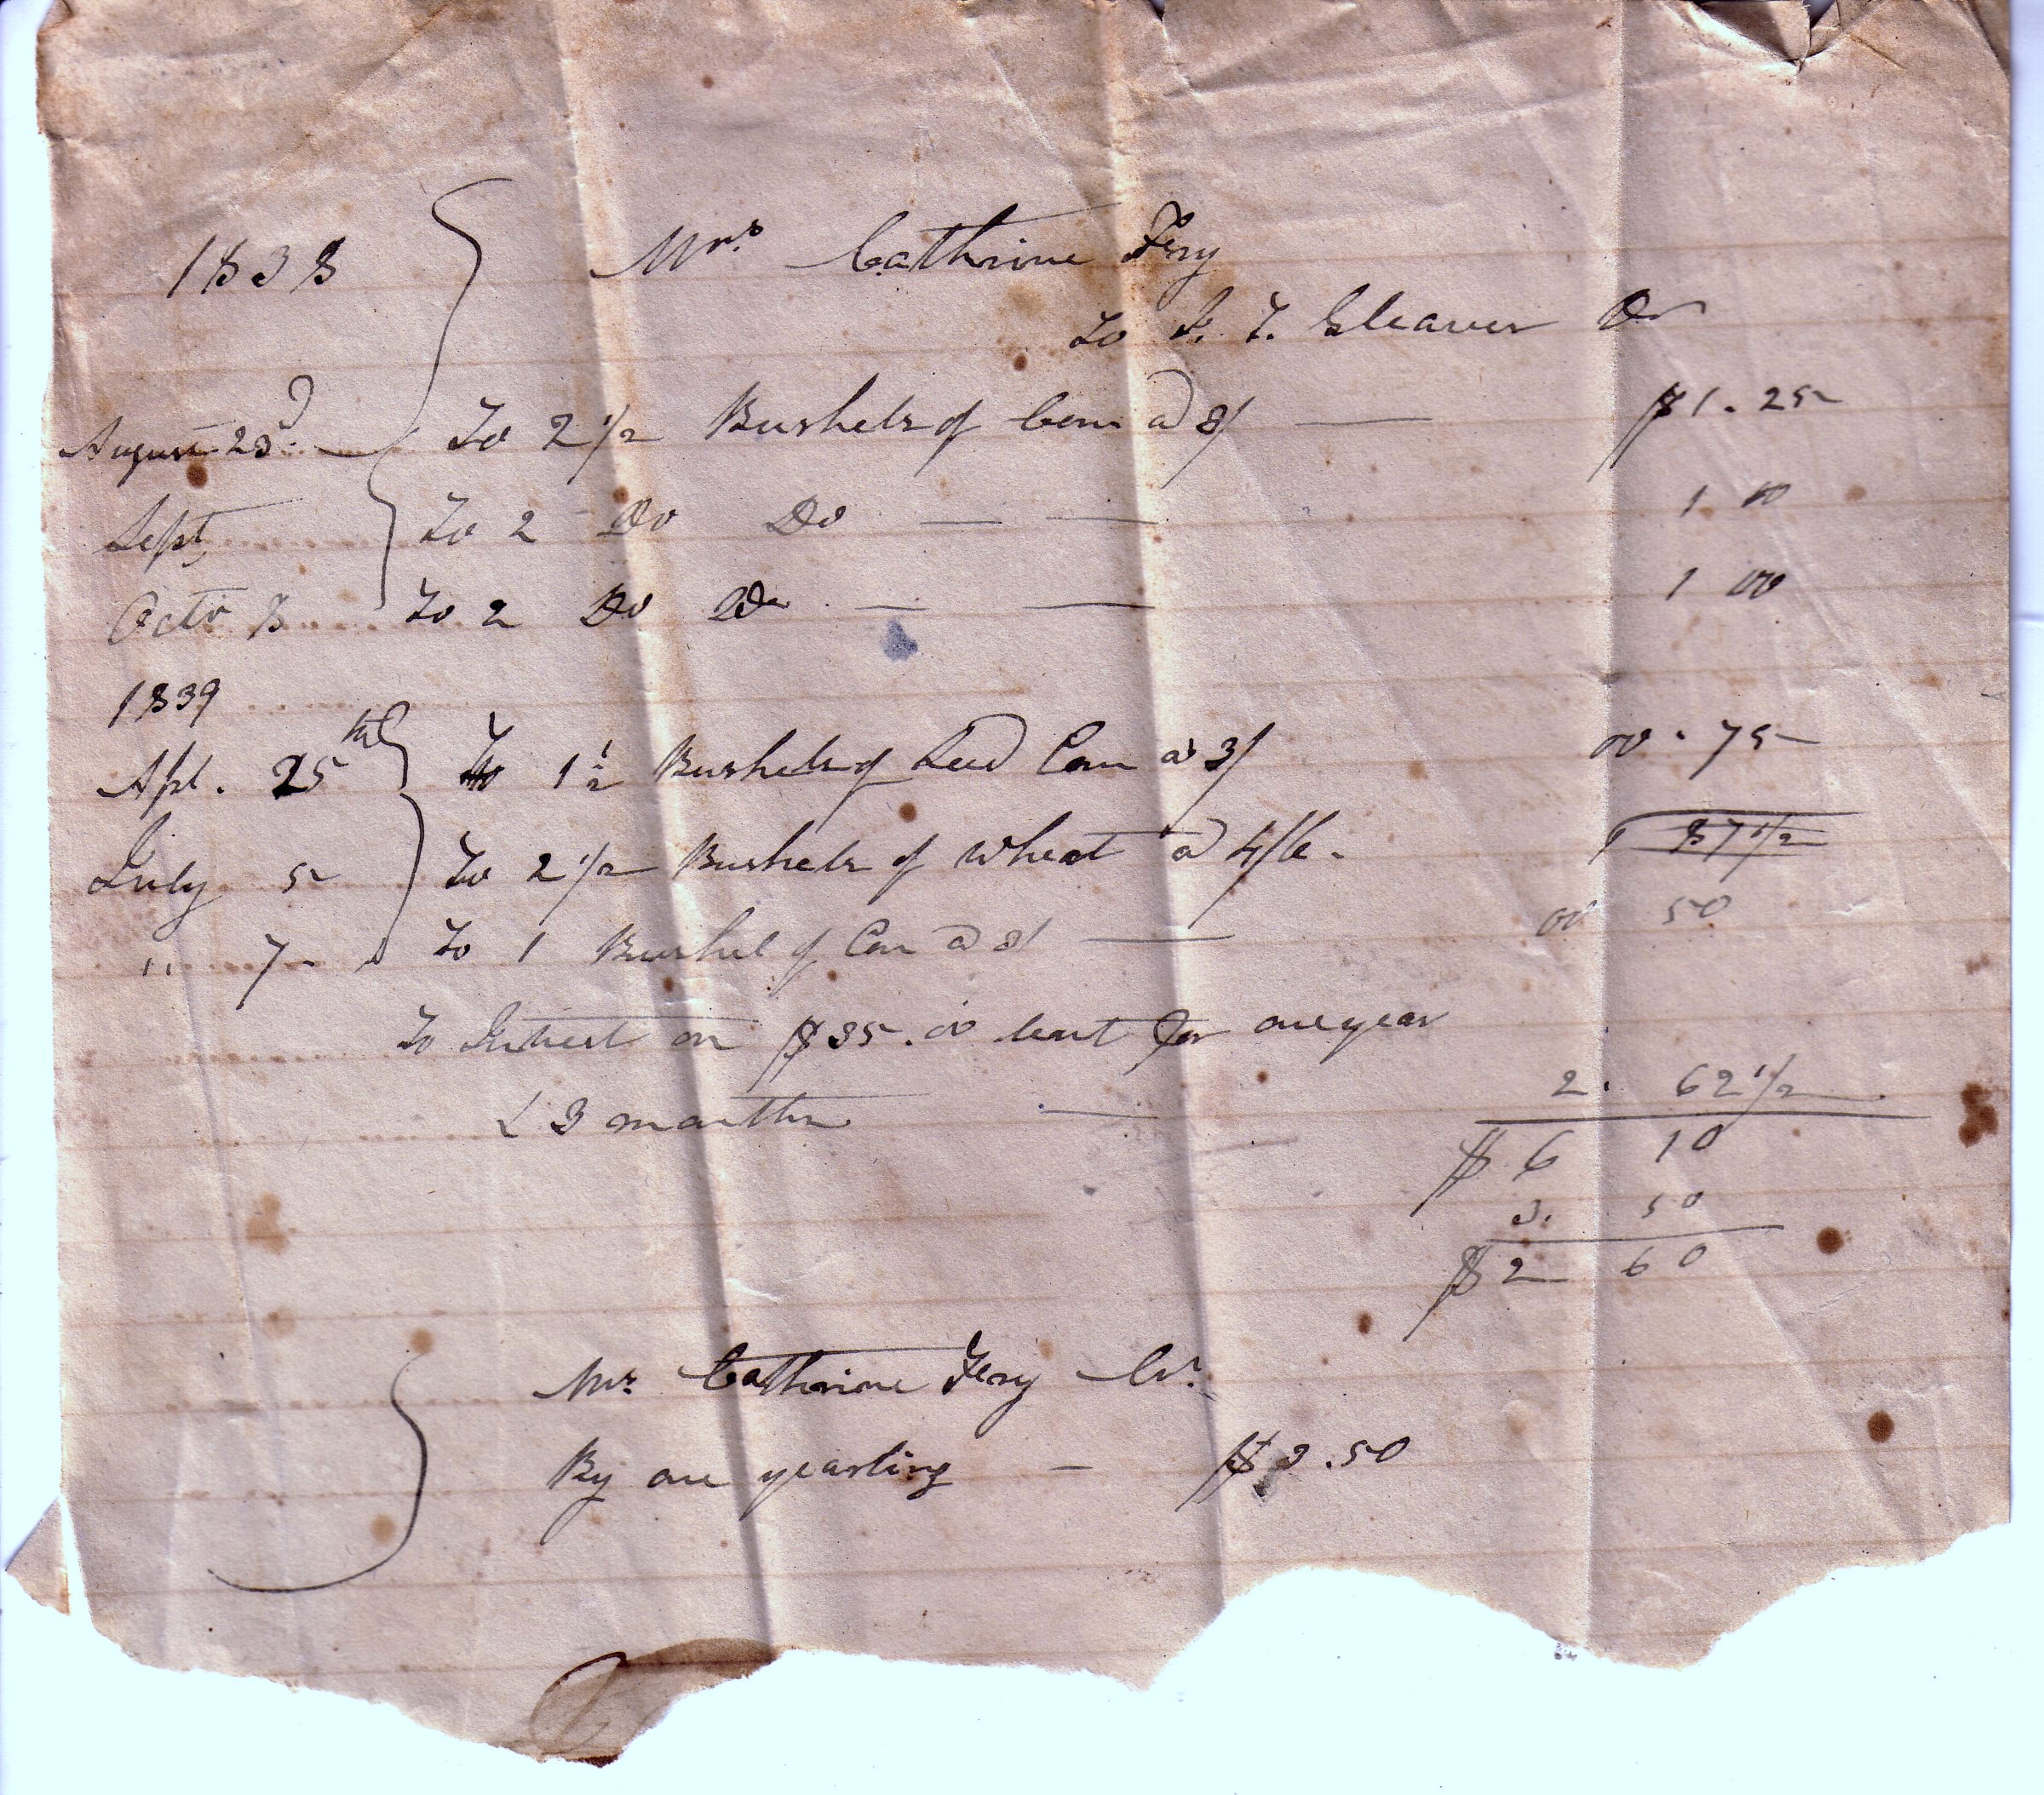 1838 Mrs. Cathrine Fery
To F. T. Cleaver Dr
August 23d. To 2 1/2 Bushels of Corn a 3/ $1.25
Sept To 2 Do Do 1 00
Octo 8 To 2 Do Do 1 00
1839
Apl. 25th To 1 1/2 Bushels of Seed Corn a 3/ 00.75
July 5 To 2 1/2 Bushels of Wheat a 4/6. 1 87 1/2
" 7 To 1 Bushel of Corn a 3/ 00 50
To Interest on $35.00 lent for one year
& 3 months 2. 62 1/2
$6 10
3. 50
$2 60
Mrs. Cathrine Fery Cr.
By one yearling $3.50